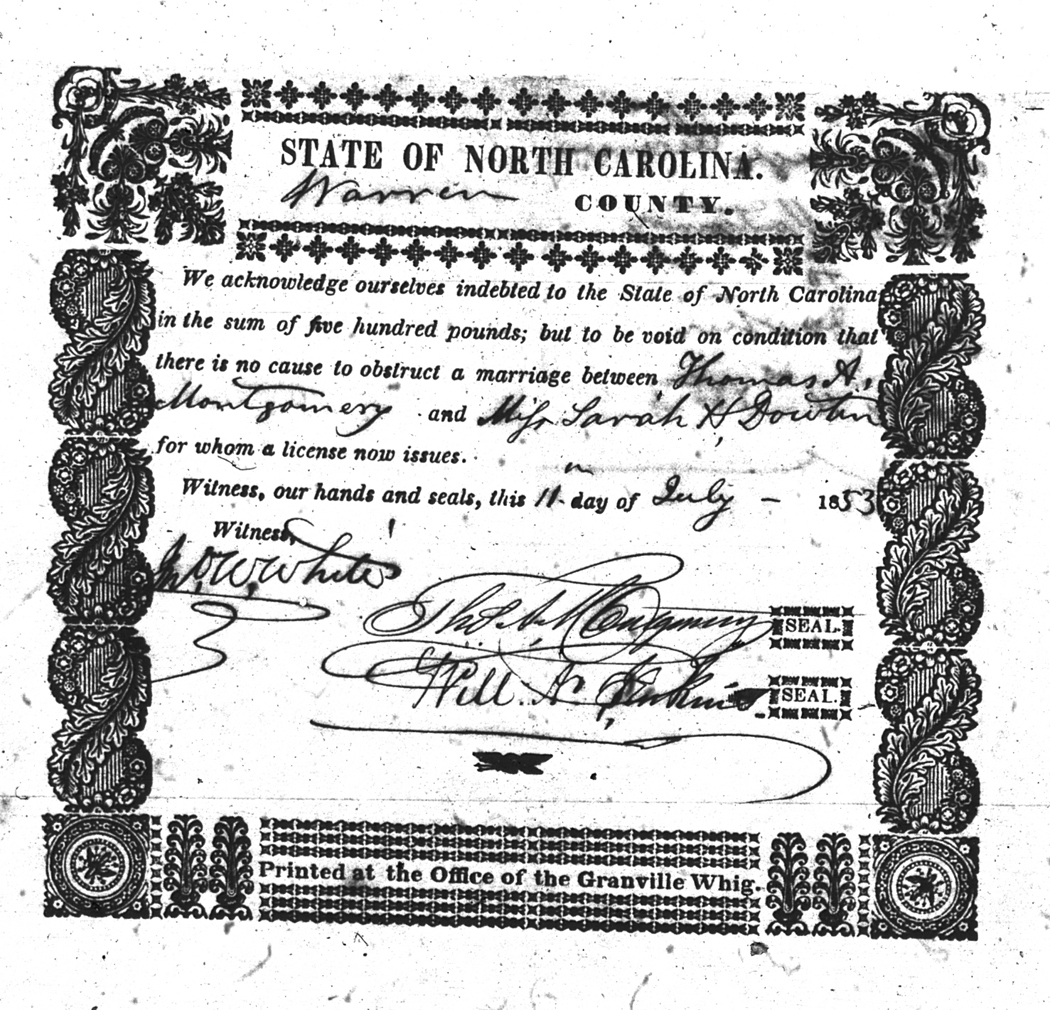 STATE OF NORTH CAROLINA.
Warren COUNTY.
We acknowledge ourselves indebted to the State of North Carolina
in the sum of five hundred pounds; but to be void on condition that
there is no cause to obstruct a marriage between Thomas A.
Montgomery and Miss Sarah H Dowtin
for whom a license now issues.
Witness, our hands and seals, this 11th day of July – 1853
Witness,
Jno. W. White
Thos. A. Montgomery SEAL.
Will. A. Jenkins SEAL.
Printed at the Office of the Granville Whig.